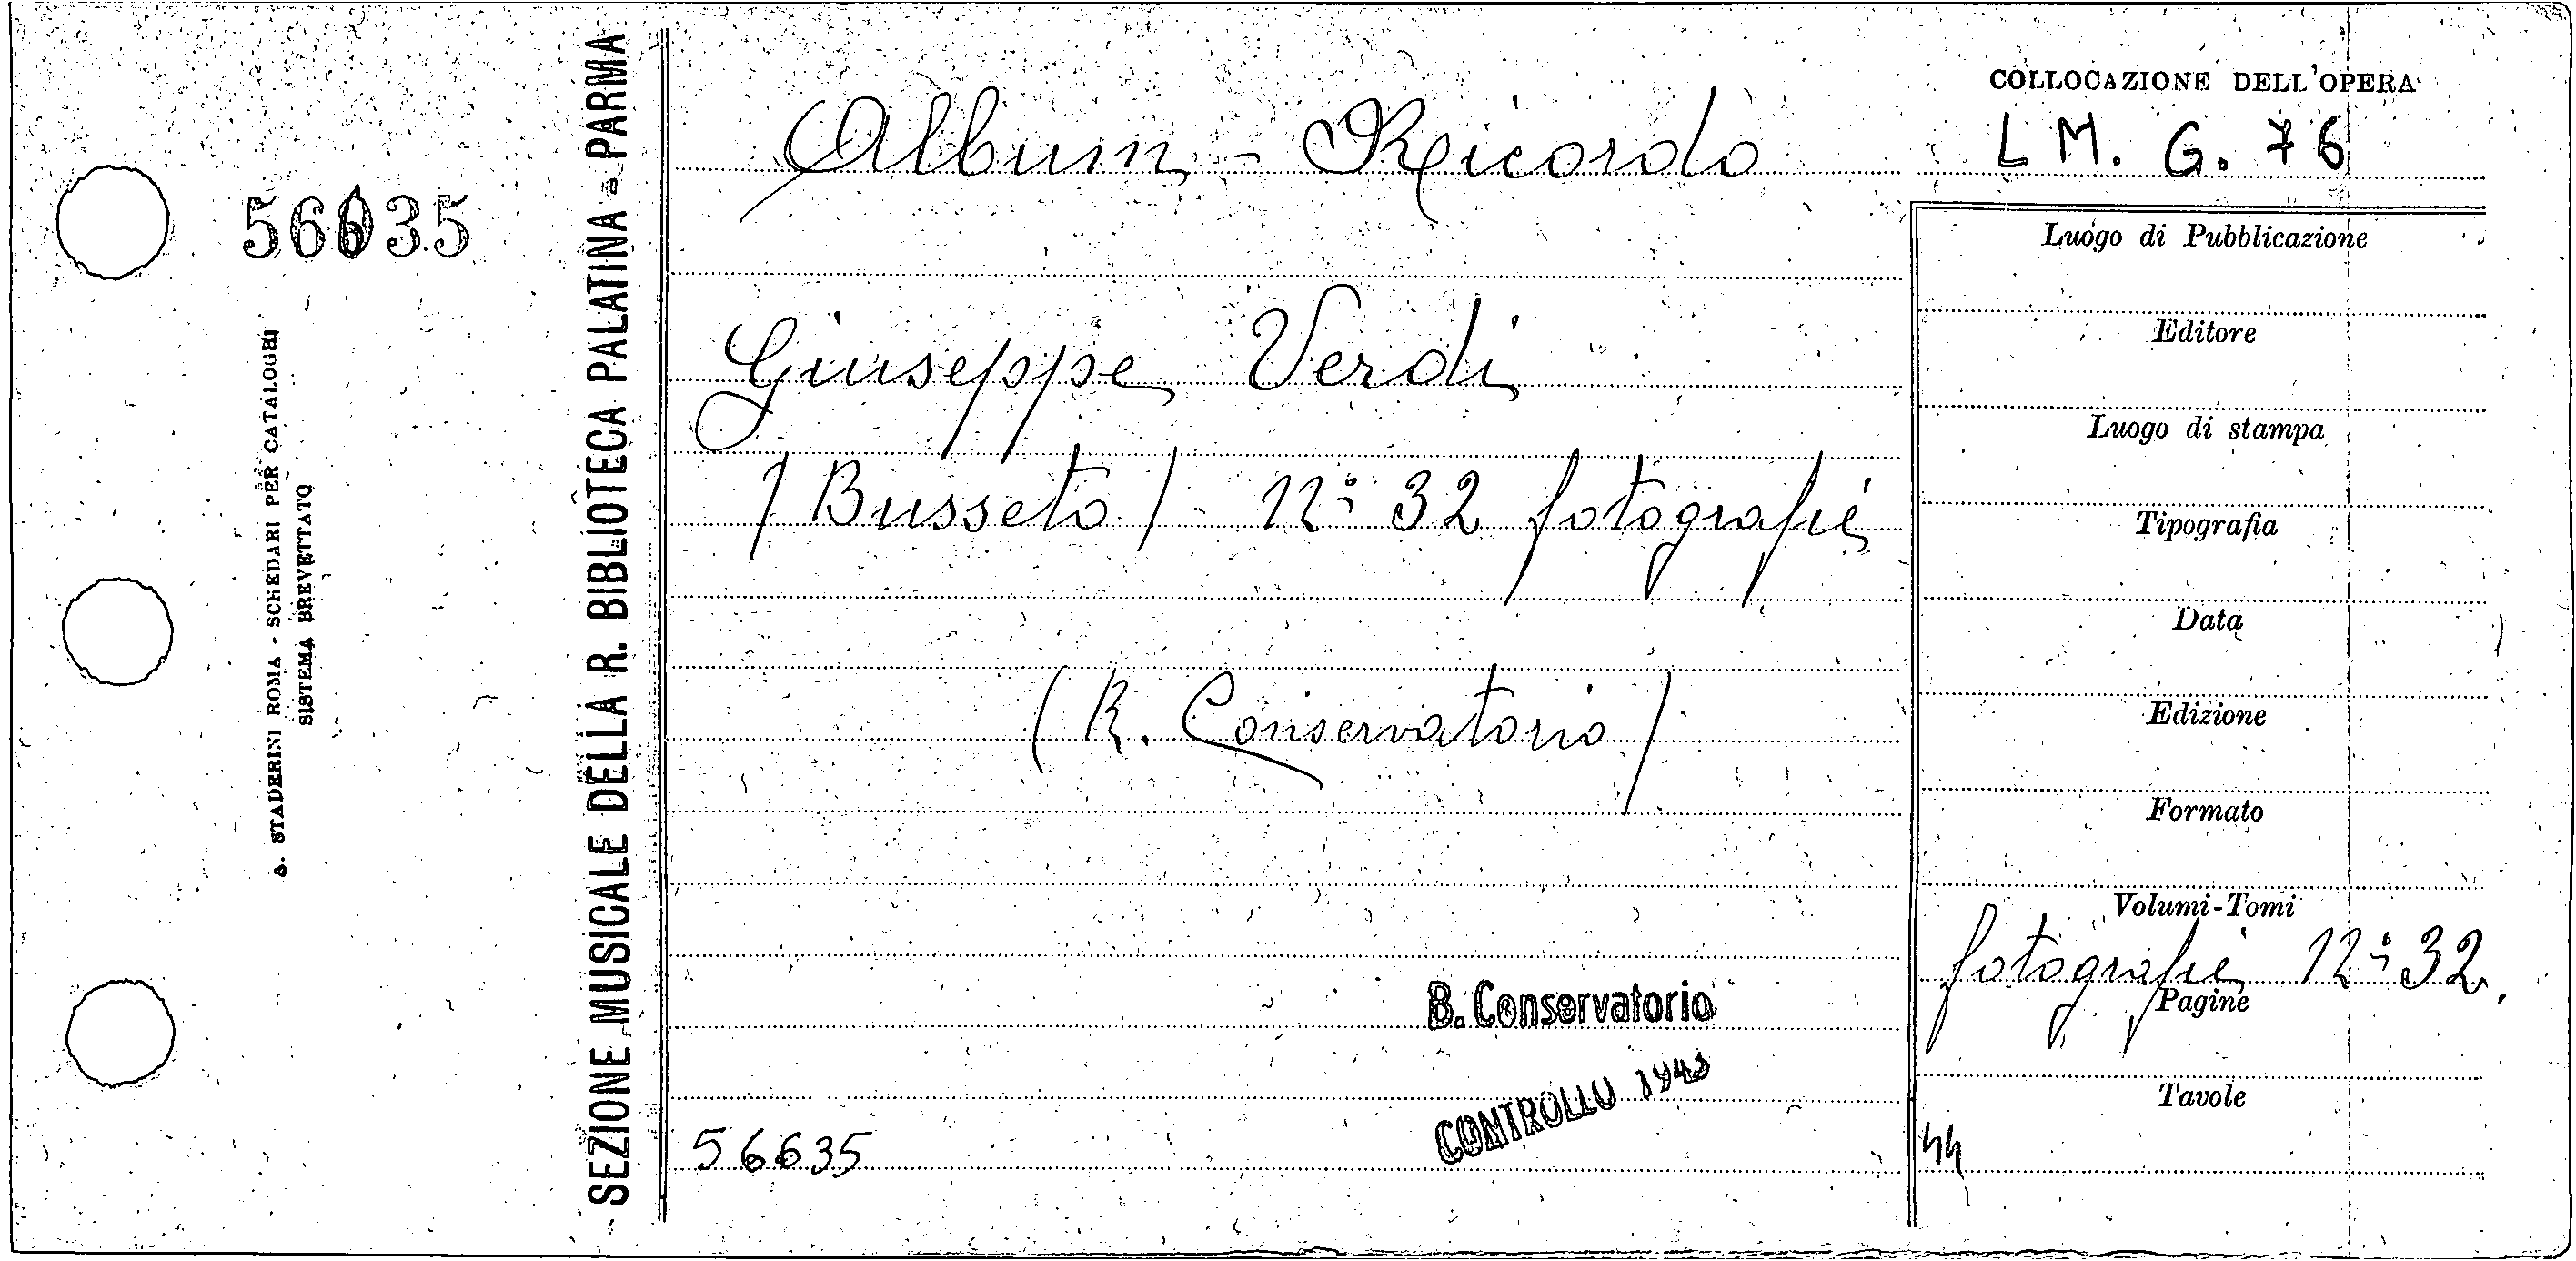 56635
A. STADERINI ROMA - SCHEDARI PER CATALOGHI
SISTEMA BREVETTATO
SEZIONE MUSICALE DELLA R. BIBLIOTECA PALATINA - PARMA
Album - Ricordo
Giuseppe Verdi
(Busseto) - n° 32 fotografie
(R. Conservatorio)
B. Conservatorio
CONTROLLO 1943
56635
COLLOCAZIONE DELL'OPERA
L M. G. 76
Luogo di Pubblicazione
Editore
Luogo di stampa
Tipografia
Data
Edizione
Formato
Volumi-Tomi
fotografie n° 32
Pagine
Tavole